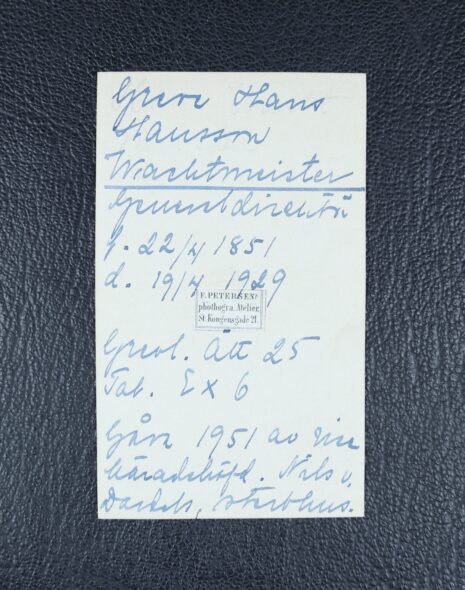 Greve Hans
Hansson
Wachtmeister
Generaldirektör
f. 22/4 1851
d. 19/4 1929
F. PETERSENS
phothogra. Atelier
St. Kongensgade 21.
Grevl. Ätt 25
Tab. EX 6
Gåva 1951 av vice
häradshöfd. Nils v.
Dardels, sterbhus.